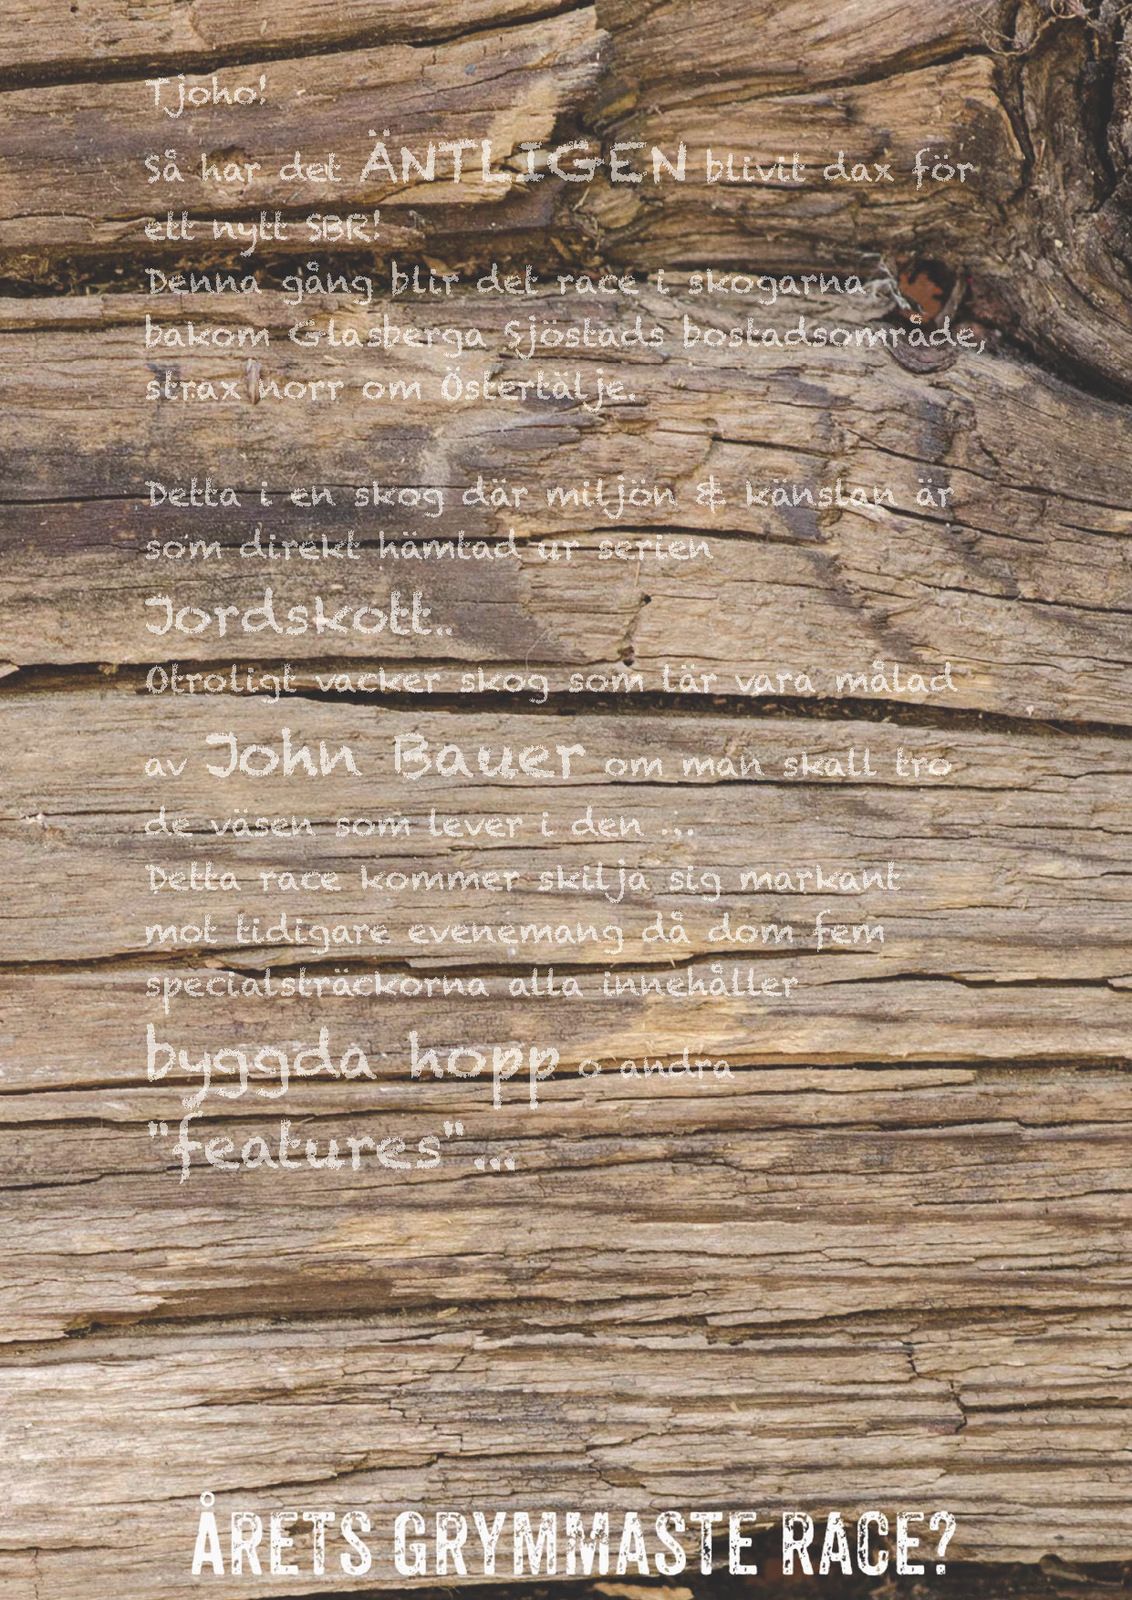 Tjoho!
Så har det ÄNTLIGEN blivit dax för
ett nytt SBR!
Denna gång blir det race i skogarna
bakom Glasberga Sjöstads bostadsområde,
strax norr om Östertälje.
Detta i en skog där miljön & känslan är
som direkt hämtad ur serien
Jordskott..
Otroligt vacker skog som lär vara målad
av John Bauer om man skall tro
de väsen som lever i den ...
Detta race kommer skilja sig markant
mot tidigare evenemang då dom fem
specialsträckorna alla innehåller
byggda hopp o andra
"features"...
ÅRETS GRYMMASTE RACE?